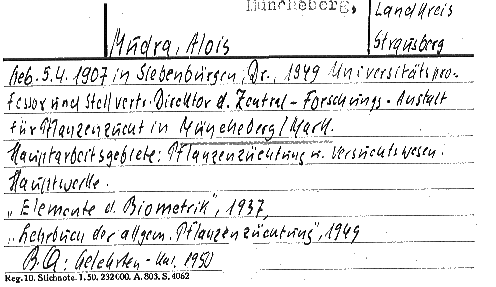 Müncheberg,
Landkreis
Mudra, Alois
Strausberg
Geb. 5.4.1907 in Siebenbürgen, Dr., 1949 Universitätspro-
fessor und Stellvertr. Direktor d. Zentral-Forschungs-Anstalt
für Pflanzenzucht in Müncheberg/Mark.
Hauptarbeitsgebiete: Pflanzenzüchtung u. Versuchswesen.
Hauptwerke.
„Elemente d. Biometrik", 1937,
„Lehrbuch der allgem. Pflanzenzüchtung", 1949
B.Q: Gelehrten-Kal. 1950
Reg. 10. Stichnote. 1. 50. 232 000. A. 803. S. 4062